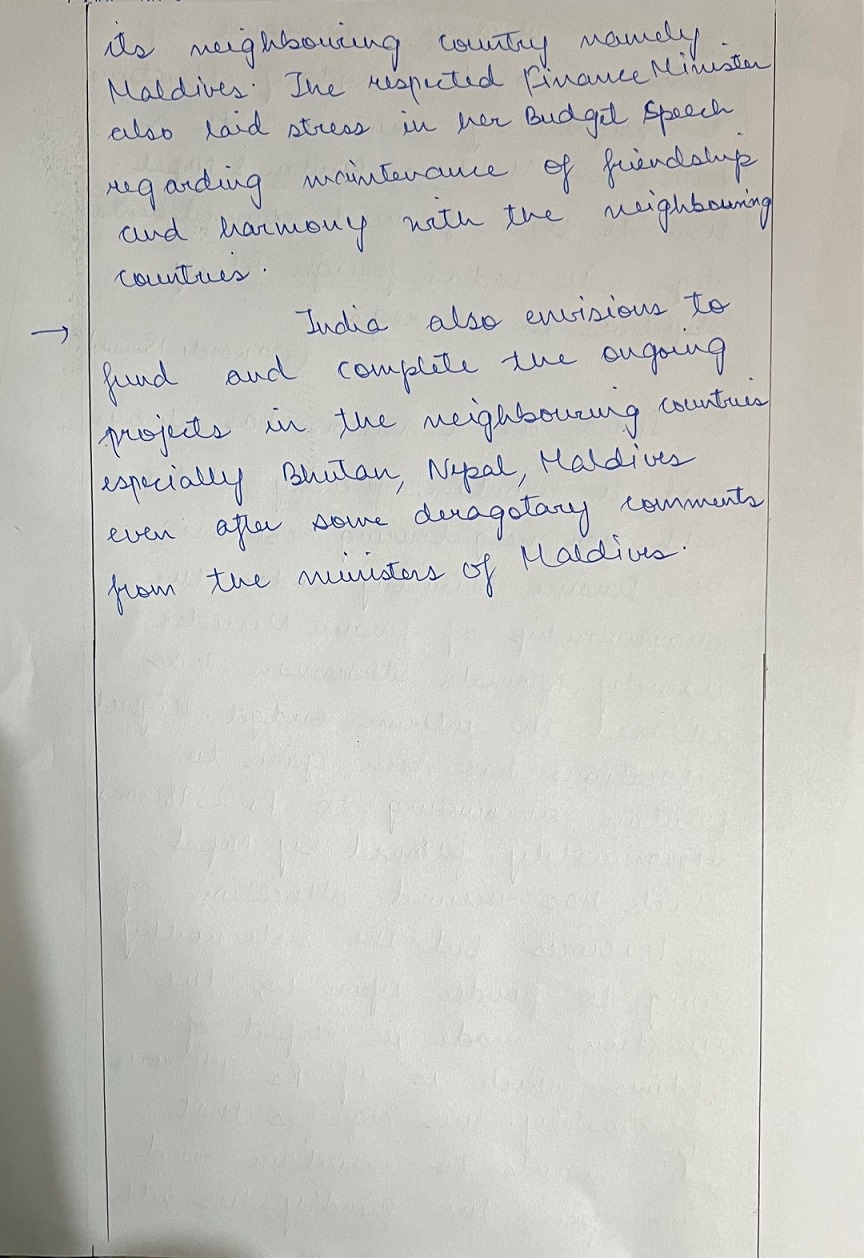 its neighbouring country namely
Maldives. The respected Finance Minister
also laid stress in her Budget Speech
regarding maintenance of friendship
and harmony with the neighbouring
countries.
→ India also envisions to
fund and complete the ongoing
projects in the neighbouring countries
especially Bhutan, Nepal, Maldives
even after some deragotary comments
from the ministers of Maldives.